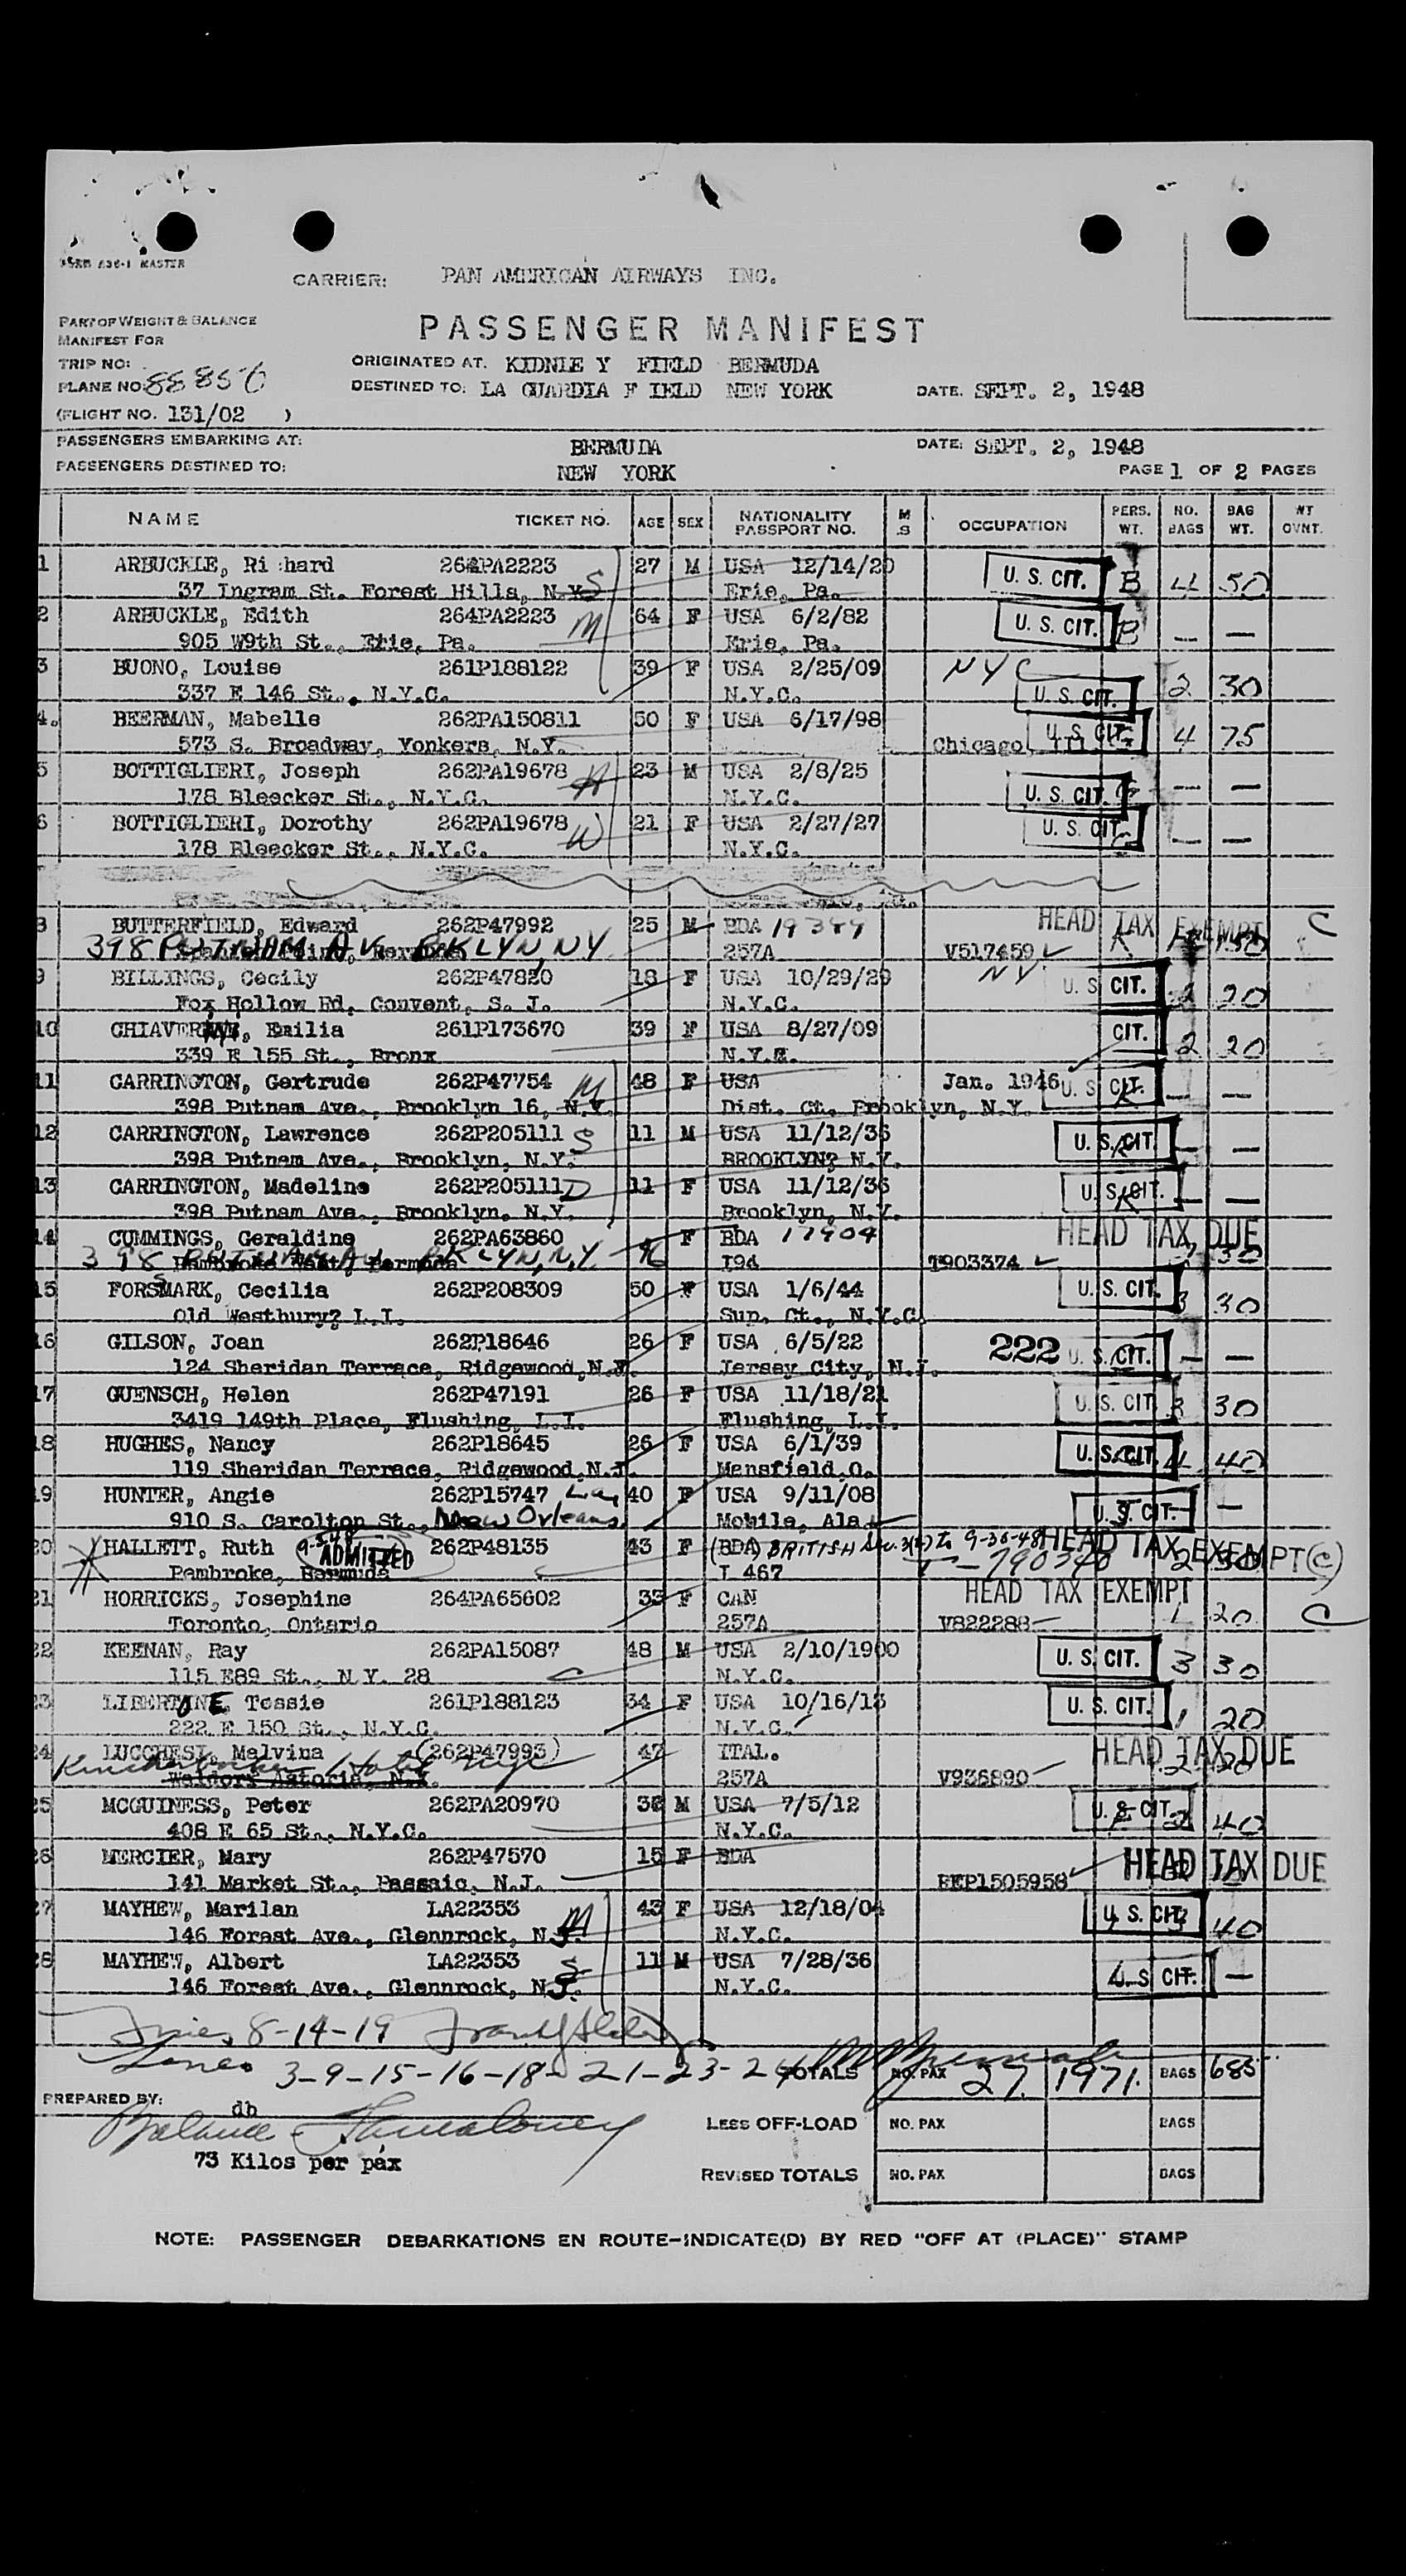 FORM A36-1 MASTER
CARRIER: PAN AMERICAN AIRWAYS INC.
PART OF WEIGHT & BALANCE
MANIFEST FOR
PASSENGER MANIFEST
TRIP NO:
ORIGINATED AT. KIDNIE Y FIELD BERMUDA
PLANE NO: 88856
DESTINED TO: LA GUARDIA F IELD NEW YORK DATE. SEPT. 2, 1948
(FLIGHT NO. 131/02 )
PASSENGERS EMBARKING AT: BERMUDA DATE: SEPT. 2, 1948
PASSENGERS DESTINED TO: NEW YORK PAGE 1 OF 2 PAGES
NAME TICKET NO. AGE SEX NATIONALITY PASSPORT NO. M S OCCUPATION PERS. WT. NO. BAGS BAG WT. WT OVNT.
1 ARBUCKLE, Ri hard 264PA2223 27 M USA 12/14/20 U. S. CIT. B 4 50
37 Ingram St. Forest Hills, N.Y. S Erie, Pa.
2 ARBUCKLE, Edith 264PA2223 M 64 F USA 6/2/82 U. S. CIT. B — —
905 W9th St., Erie, Pa. Erie, Pa.
3 BUONO, Louise 261P188122 39 F USA 2/25/09 NYC U. S. CIT. 2 30
337 E 146 St., N.Y.C. N.Y.C.
4. BEERMAN, Mabelle 262PA150811 50 F USA 6/17/98 U. S. CIT. 4 75
573 S. Broadway, Yonkers, N.Y. Chicago, Ill.
5 BOTTIGLIERI, Joseph 262PA19678 H 23 M USA 2/8/25 U. S. CIT. — —
178 Bleecker St., N.Y.C. N.Y.C.
6 BOTTIGLIERI, Dorothy 262PA19678 W 21 F USA 2/27/27 U. S. CIT. — —
178 Bleecker St., N.Y.C. N.Y.C.
8 BUTTERFIELD, Edward 262P47992 25 M BDA 19389 HEAD TAX EXEMPT C
398 PUTNAM AV. BKLYN, NY 257A V517459 K
9 BILLINGS, Cecily 262P47820 18 F USA 10/29/29 NY U. S. CIT. 2 20
Fox Hollow Rd, Convent, S. J. N.Y.C.
10 CHIAVER , Emilia 261P173670 39 F USA 8/27/09 CIT. 2 20
339 E 155 St., Bronx
11 CARRINGTON, Gertrude 262P47754 M 48 F USA Jan. 1946 U. S. CIT. — —
398 Putnam Ave., Brooklyn 16, N.Y. Dist. Ct. Brooklyn, N.Y.
12 CARRINGTON, Lawrence 262P205111 S 11 M USA 11/12/36 U. S. CIT. — —
398 Putnam Ave., Brooklyn, N.Y. BROOKLYN? N.Y.
13 CARRINGTON, Madeline 262P205111 D 11 F USA 11/12/36 U. S. CIT. — —
398 Putnam Ave., Brooklyn, N.Y. Brooklyn, N.Y.
14 CUMMINGS, Geraldine 262PA63860 F BDA 17904 HEAD TAX DUE
398 PUTNAM AV. BKLYN, N.Y. I94 T903374 30
15 FORSMARK, Cecilia 262P208309 50 F USA 1/6/44 U. S. CIT. 3 30
Old Westbury? L.I. Sup. Ct., N.Y.C.
16 GILSON, Joan 262P18646 26 F USA 6/5/22 222 U. S. CIT. — —
124 Sheridan Terrace, Ridgewood,N.J. Jersey City, N.J.
17 GUENSCH, Helen 262P47191 26 F USA 11/18/21 U. S. CIT. 3 30
3419 149th Place, Flushing, L.I. Flushing, L.I.
18 HUGHES, Nancy 262P18645 26 F USA 6/1/39 U. S. CIT. 4 40
119 Sheridan Terrace, Ridgewood,N.J. Mansfield,O.
19 HUNTER, Angie 262P15747 La, 40 F USA 9/11/08 U. S. CIT. —
910 S. Carolton St., New Orleans. Mobile, Ala
20 HALLETT, Ruth 9-5-48 ADMITTED 262P48135 43 F (BDA) BRITISH Sec. 3(2) to 9-30-48 HEAD TAX EXEMPT (C)
Pembroke, Bermuda I 467 T-790340 2 30
21 HORRICKS, Josephine 264PA65602 33 F CAN HEAD TAX EXEMPT 1 20 C
Toronto, Ontario 257A V822288
22 KEENAN, Ray 262PA15087 48 M USA 2/10/1900 U. S. CIT. 3 30
115 E89 St., N.Y. 28 N.Y.C.
23 LIBERTINE, Tessie 261P188123 34 F USA 10/16/13 U. S. CIT. 1 20
222 E 150 St., N.Y.C. N.Y.C.
24 LUCCHESI, Malvina (262P47993) 47 ITAL. HEAD TAX DUE
Knickerbocker Hotel NYC
Waldorf Astoria, N.Y. 257A V936890
25 MCGUINESS, Peter 262PA20970 36 M USA 7/5/12 U. S. CIT. 40
408 E 65 St., N.Y.C. N.Y.C.
26 MERCIER, Mary 262P47570 15 F BDA HEAD TAX DUE
141 Market St., Passaic, N.J. BEP1505958
27 MAYHEW, Marilan LA22353 M 43 F USA 12/18/04 U. S. CIT. 40
146 Forest Ave., Glennrock, N.J. N.Y.C.
28 MAYHEW, Albert LA22353 S 11 M USA 7/28/36 U. S. CIT. —
146 Forest Ave., Glennrock, N.J. N.Y.C.
Lines 8-14-19
Lines 3-9-15-16-18-21-23-24
TOTALS NO. PAX 27 1971. BAGS 685
PREPARED BY: db
LESS OFF-LOAD NO. PAX BAGS
73 Kilos per pax
REVISED TOTALS NO. PAX BAGS
NOTE: PASSENGER DEBARKATIONS EN ROUTE-INDICATE(D) BY RED "OFF AT (PLACE)" STAMP